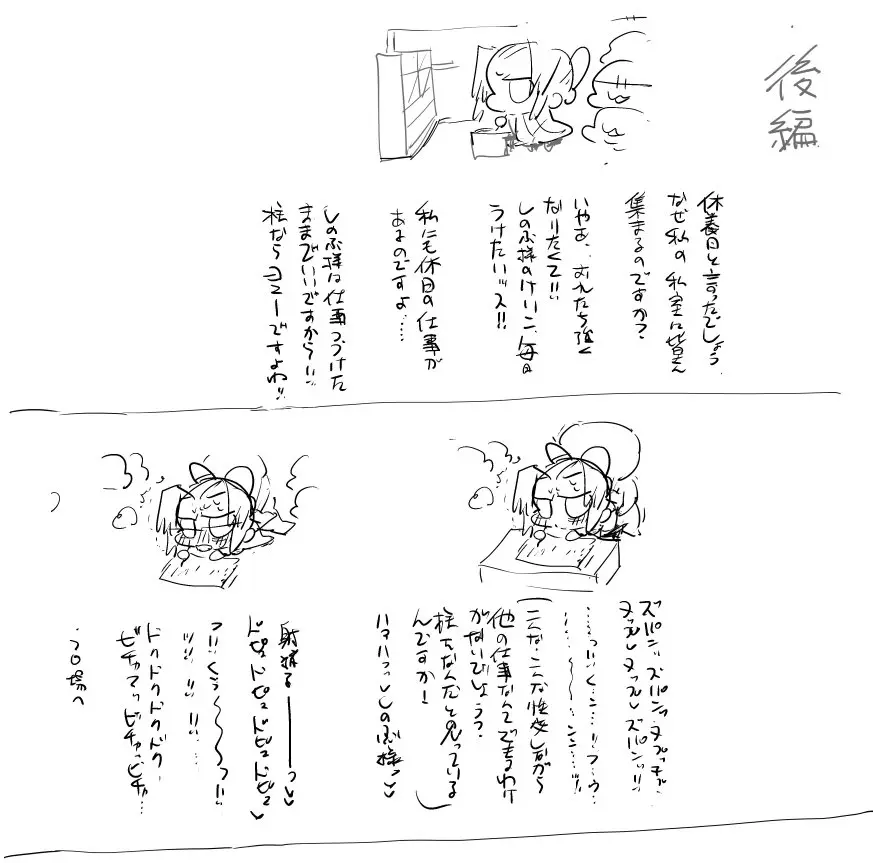 後編
休養日と言ったでしょう
なぜ私の私室に皆さん
集まるのですか？
いやぁ、おれたち強く
なりたくて!!
しのぶ様のけいこ、毎日
うけたいッス!!
私にも休日の仕事が
あるのですよ……
しのぶ様は仕事つづけた
ままでいいですから!!
柱ならヨユーですよね!!
ズパンッズパンッ
ヌップヌップズパンッ!!
こんな…こんな性交しながら
他の仕事なんてできるわけ
がないでしょう？
柱をなんだと思っている
んですか！
ハァハァっ♡しのぶ様っ♡♡
射精る――――っ♡♡
ドピュドピュドピュドピュ♡
ドクドクドクドク…